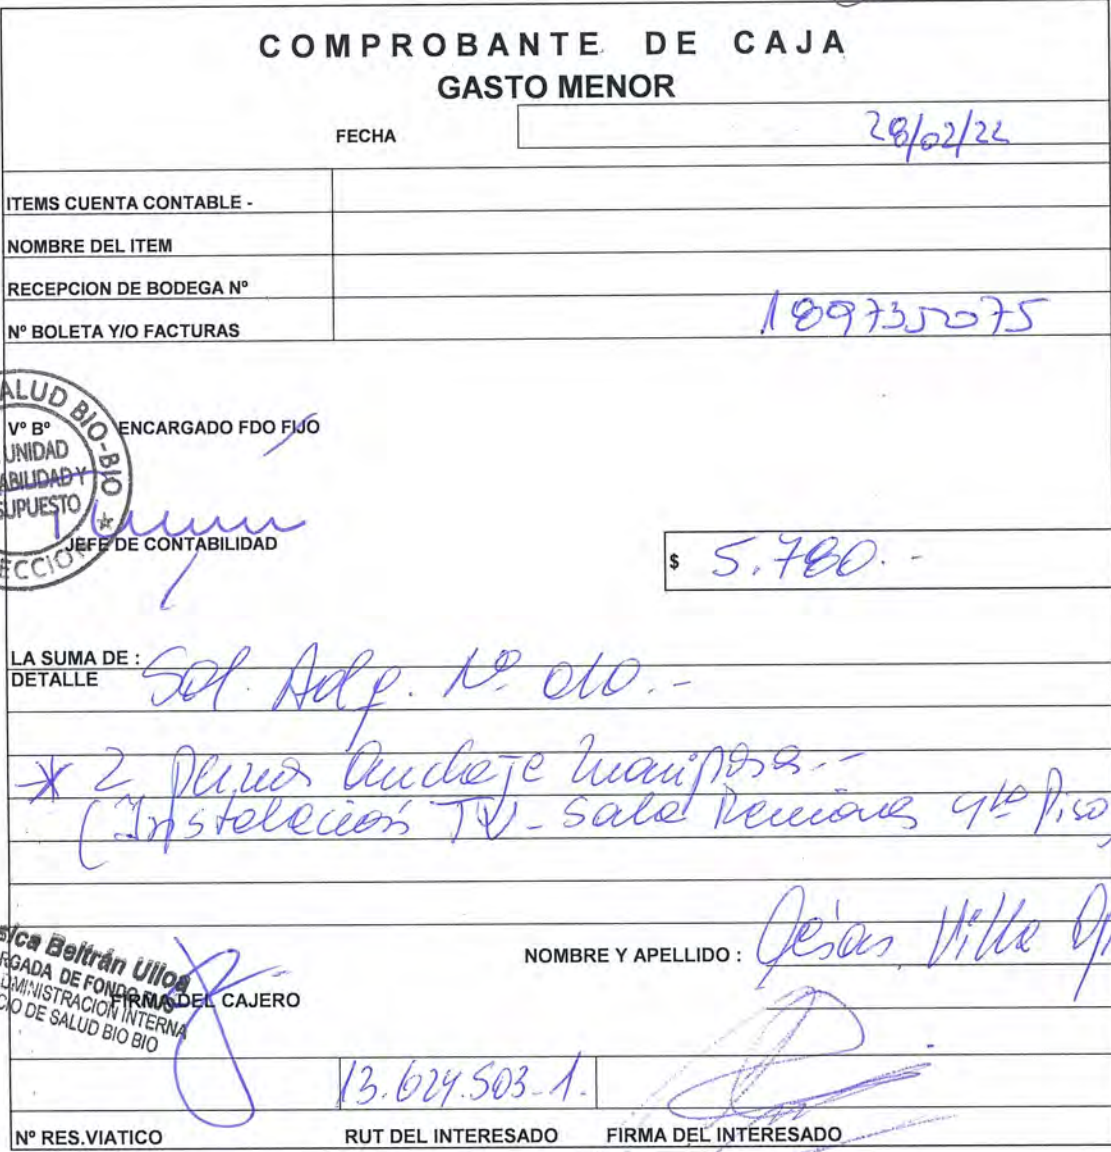 COMPROBANTE DE CAJA
GASTO MENOR
FECHA 28/02/22
ITEMS CUENTA CONTABLE -
NOMBRE DEL ITEM
RECEPCION DE BODEGA Nº
Nº BOLETA Y/O FACTURAS 1897352075
ALUD BIO-BIO
Vº Bº
UNIDAD
ABILIDAD Y
SUPUESTO
ECCION
ENCARGADO FDO FIJO
JEFE DE CONTABILIDAD
$ 5.780.-
LA SUMA DE :
DETALLE Sol. Adq. Nº 010.-
* 2 pernos anclaje mariposa.-
(Instalación TV - Sala Reuniones 4to Piso
sica Beltrán Ulloa
RGADA DE FONDO FIJO
DMINISTRACION INTERNA
CIO DE SALUD BIO BIO
FIRMA DEL CAJERO
NOMBRE Y APELLIDO : Jesús Villa
13.624.503-1.
Nº RES.VIATICO RUT DEL INTERESADO FIRMA DEL INTERESADO